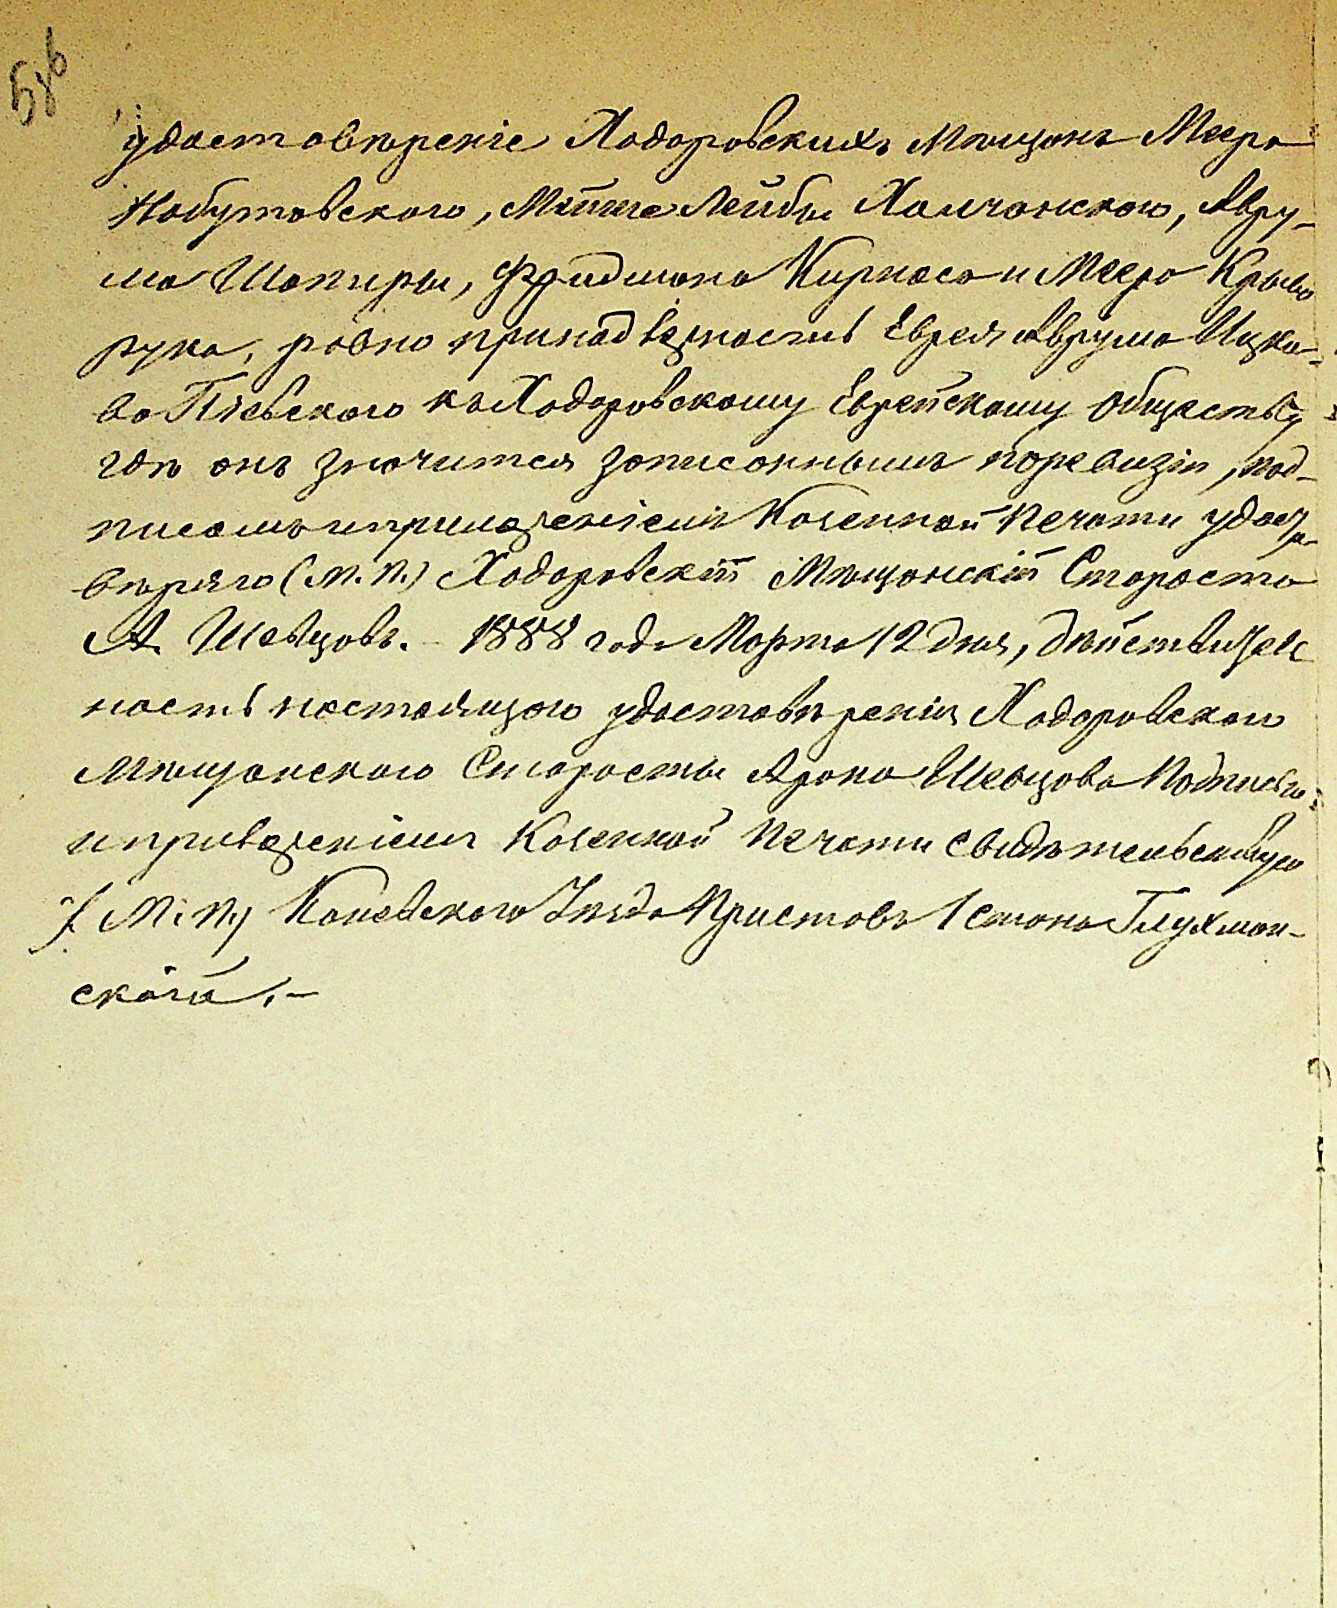 удостовѣреніе Ходоровскихъ мѣщанъ Меера
Набутовского, Мойше Лейбы Халчанского, Авру-
ма Шапиры, Фроидмана Кирнаса и Меера Криво
рука, равно принадлежность Еврея Аврума Ицко-
ва Пяевского къ Ходоровскому Еврейскому обществу
гдѣ онъ значится записаннымъ поревизіи, под-
писомъ и приложеніемъ Казенной Печати удосто-
вѣряю (М. П.) Ходоровскій Мѣщанскій Староста
А. Шевцовъ. - 1888 года Марта 12 дня, дѣйствитель
ность настоящаго удостовѣренія Ходоровского
Мѣщанского Старосты Арона Шевцова Подписью
и приложеніемъ Казенной Печати свидѣтельствую
(М. П.) Каневского Уѣзда Приставъ 1 стана Глухман-
скій. -